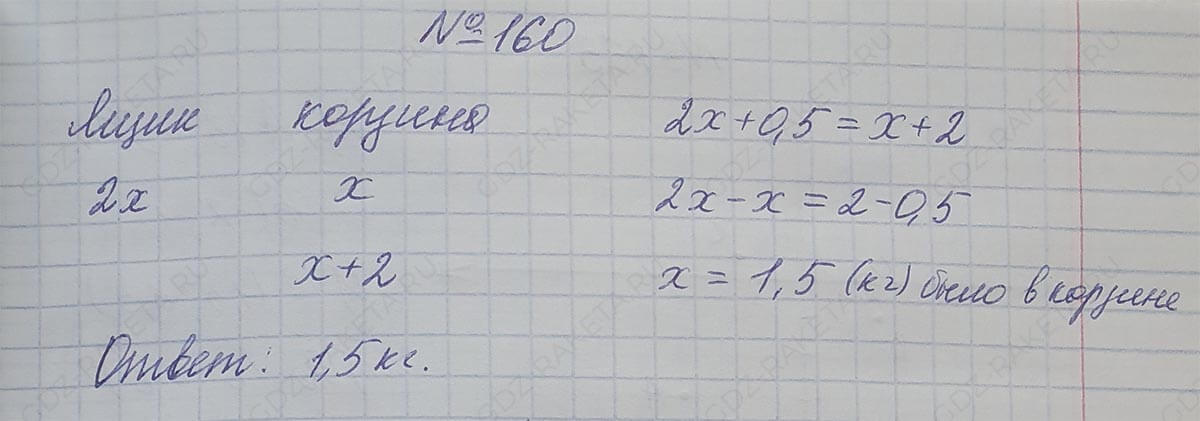 №160
Ящик корзина 2x+0,5=x+2
2x x 2x-x=2-0,5
x+2 x=1,5 (кг) было в корзине
Ответ: 1,5 кг.
GDZ-RAKETA.RU